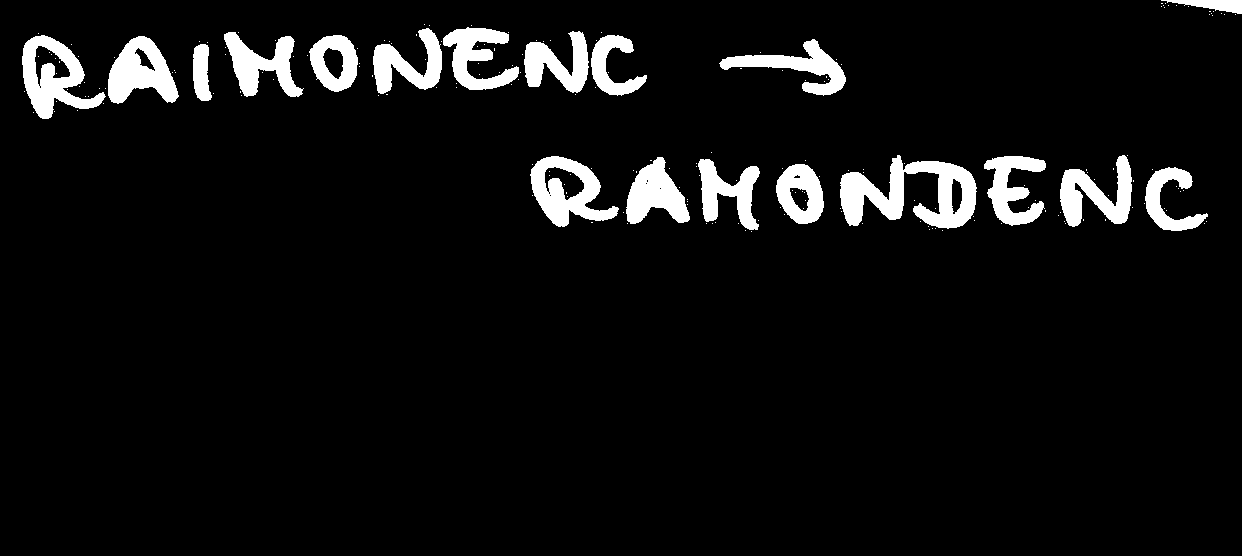 RAIMONENC →
RAMONDENC